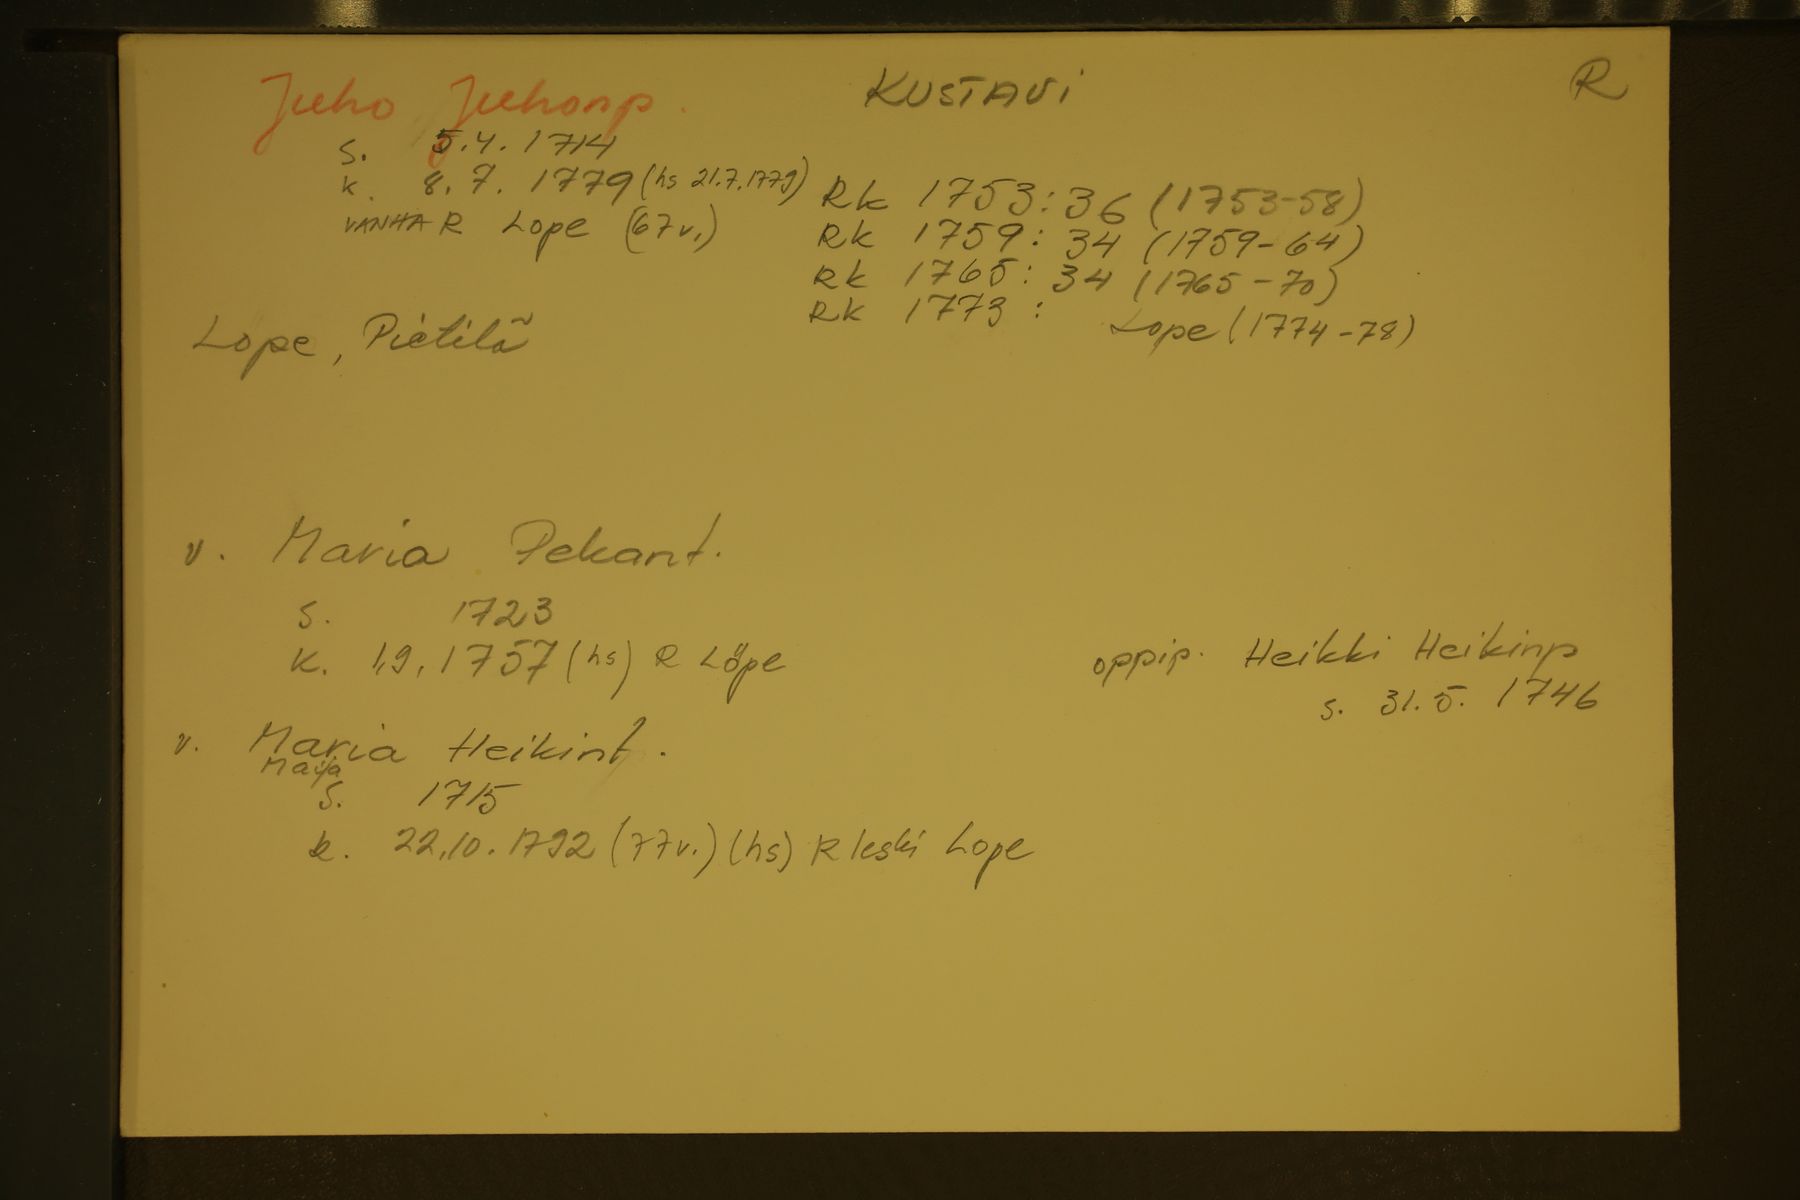 Juho Juhonp. KUSTAVI R
s. 5.4.1714
k. 8.7.1779 (hs 21.7.1779)
VANHA R Lope (67v.)
Rk 1753:36 (1753-58)
Rk 1759:34 (1759-64)
Rk 1765:34 (1765-70)
Rk 1773: Lope (1774-78)
Lope, Pietilä
v. Maria Pekant.
s. 1723
k. 1.9.1757 (hs) R Löpe
oppip. Heikki Heikinp
s. 31.5.1746
v. Maria Heikint.
Maija
s. 1715
k. 22.10.1792 (77v.) (hs) R leski Lope